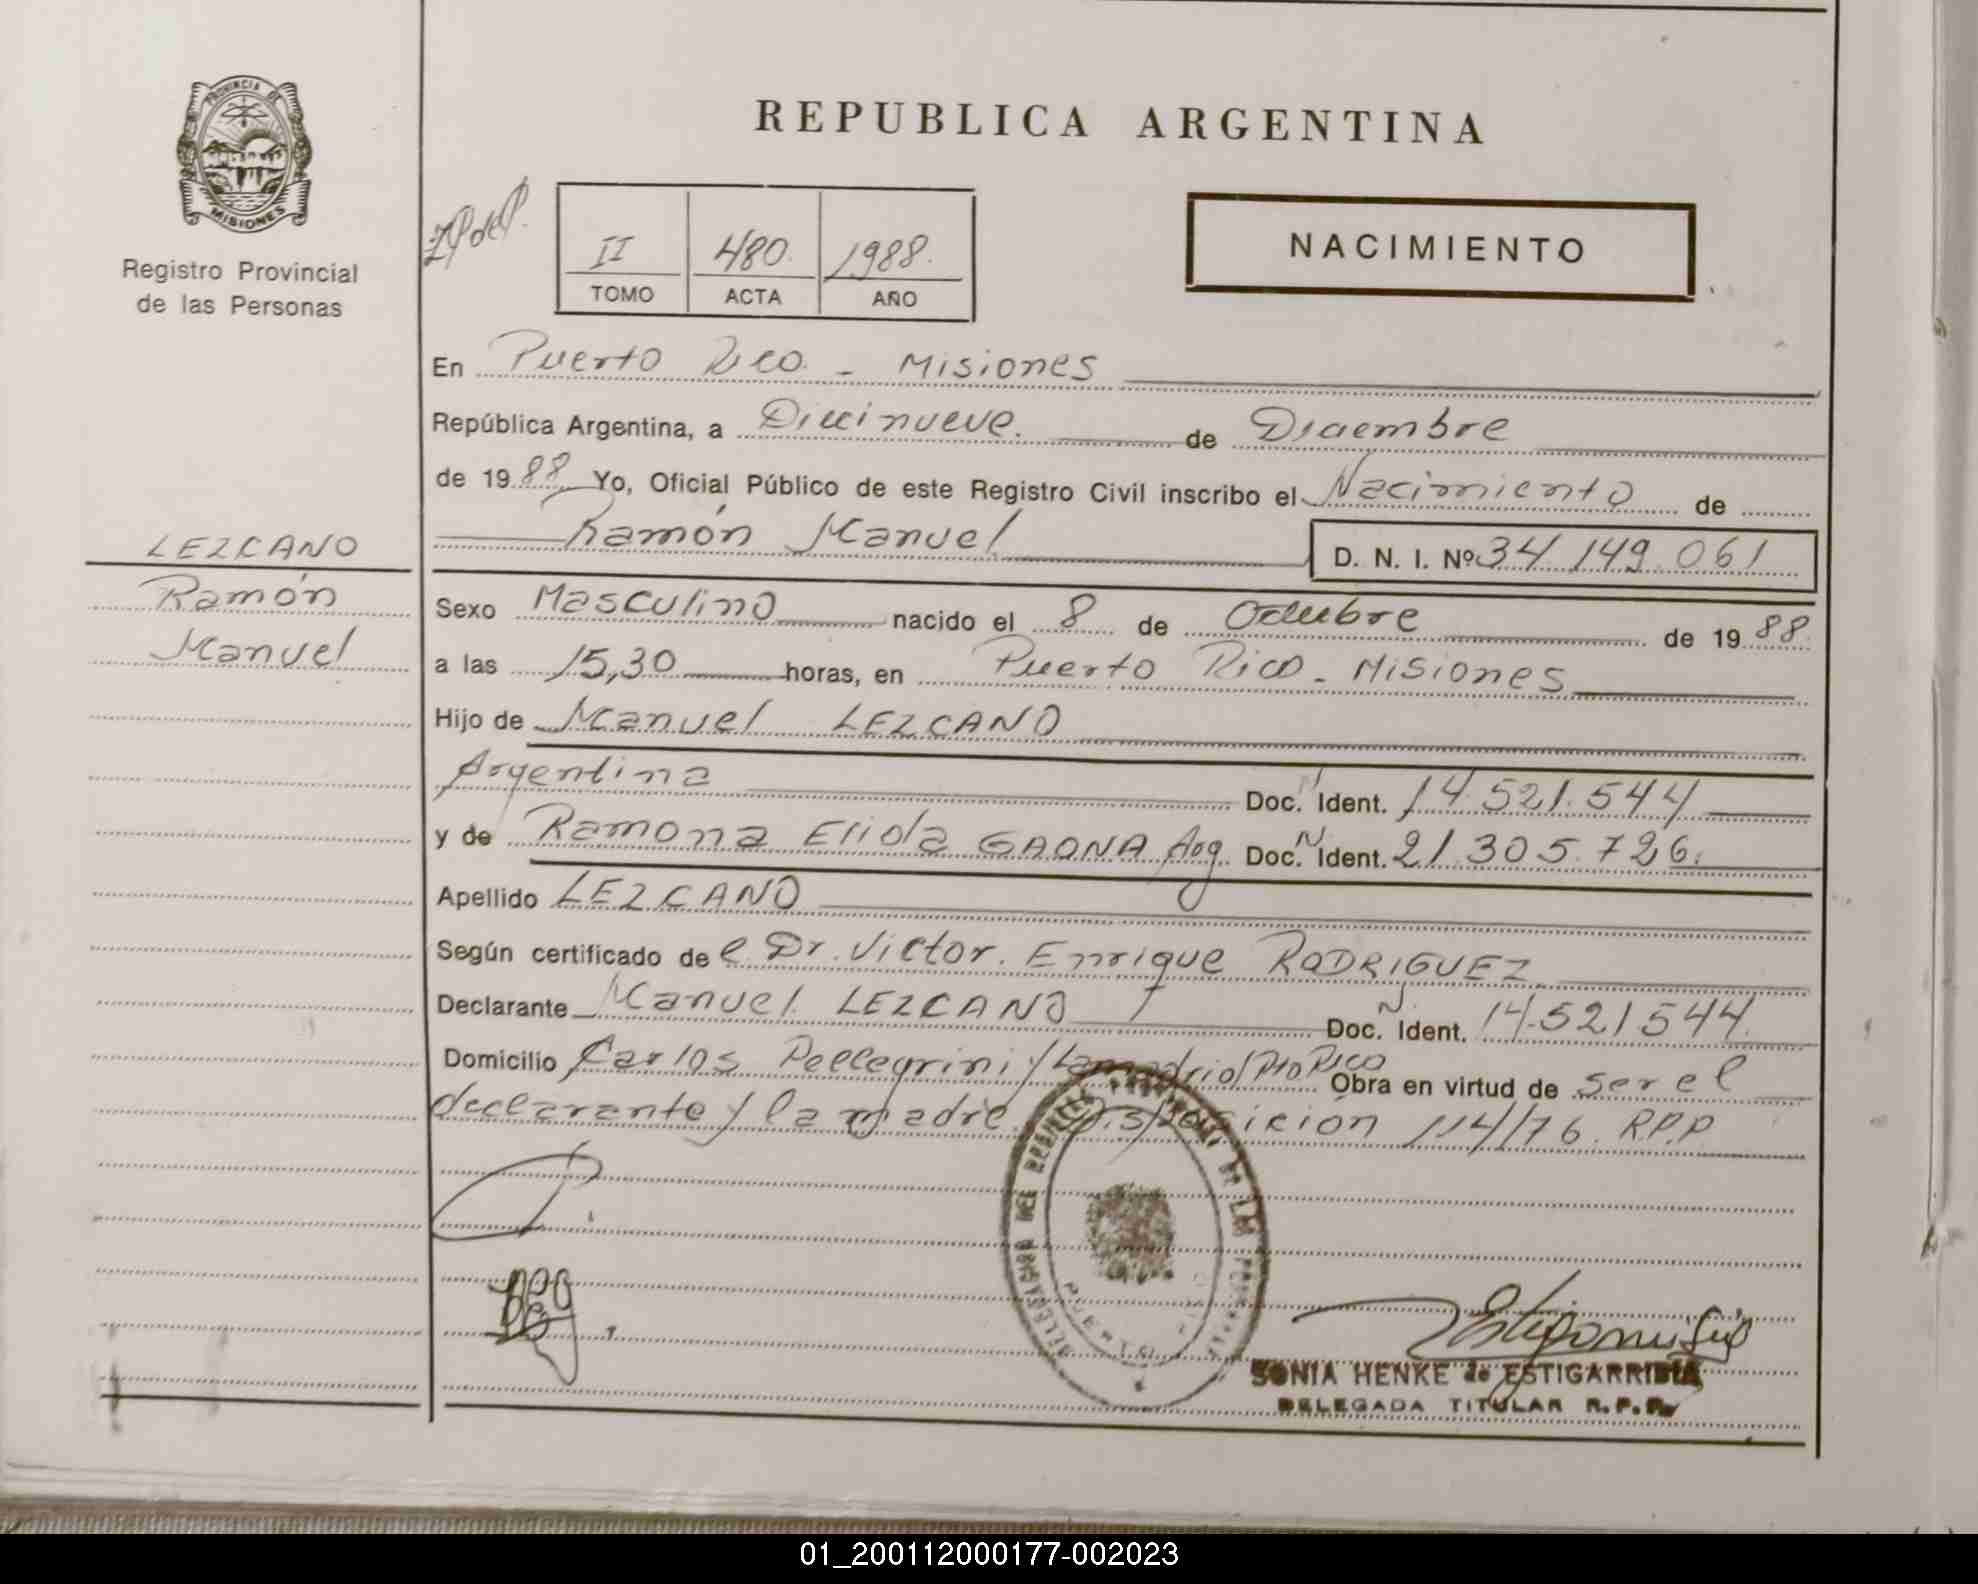 PROVINCIA DE
MISIONES
Registro Provincial
de las Personas
REPUBLICA ARGENTINA
II 480. 1988.
TOMO ACTA AÑO
NACIMIENTO
En Puerto Rico. - Misiones
República Argentina, a Diecinueve. de Diciembre
de 1988 Yo, Oficial Público de este Registro Civil inscribo el Nacimiento de
Ramón Manuel D. N. I. Nº 34.149.061
LEZCANO
Ramón
Manuel
Sexo Masculino nacido el 8 de Octubre de 1988.
a las 15,30 horas, en Puerto Rico - Misiones
Hijo de Manuel LEZCANO
Argentina Doc. Ident. 14.521.544
y de Ramona Elida GAONA Arg. Doc. Ident. 21.305.726.
Apellido LEZCANO
Según certificado del Dr. Victor Enrique RODRIGUEZ
Declarante Manuel LEZCANO Doc. Ident. 14.521544
Domicilio Carlos Pellegrini y Lamadrid/Pto Rico Obra en virtud de ser el
declarante y la madre. Disposición 114/76. R.P.P
DELEGACION DEL REGISTRO PROVINCIAL DE LAS PERSONAS
PUERTO RICO
SONIA HENKE de ESTIGARRIBIA
DELEGADA TITULAR R.P.P.
01_200112000177-002023